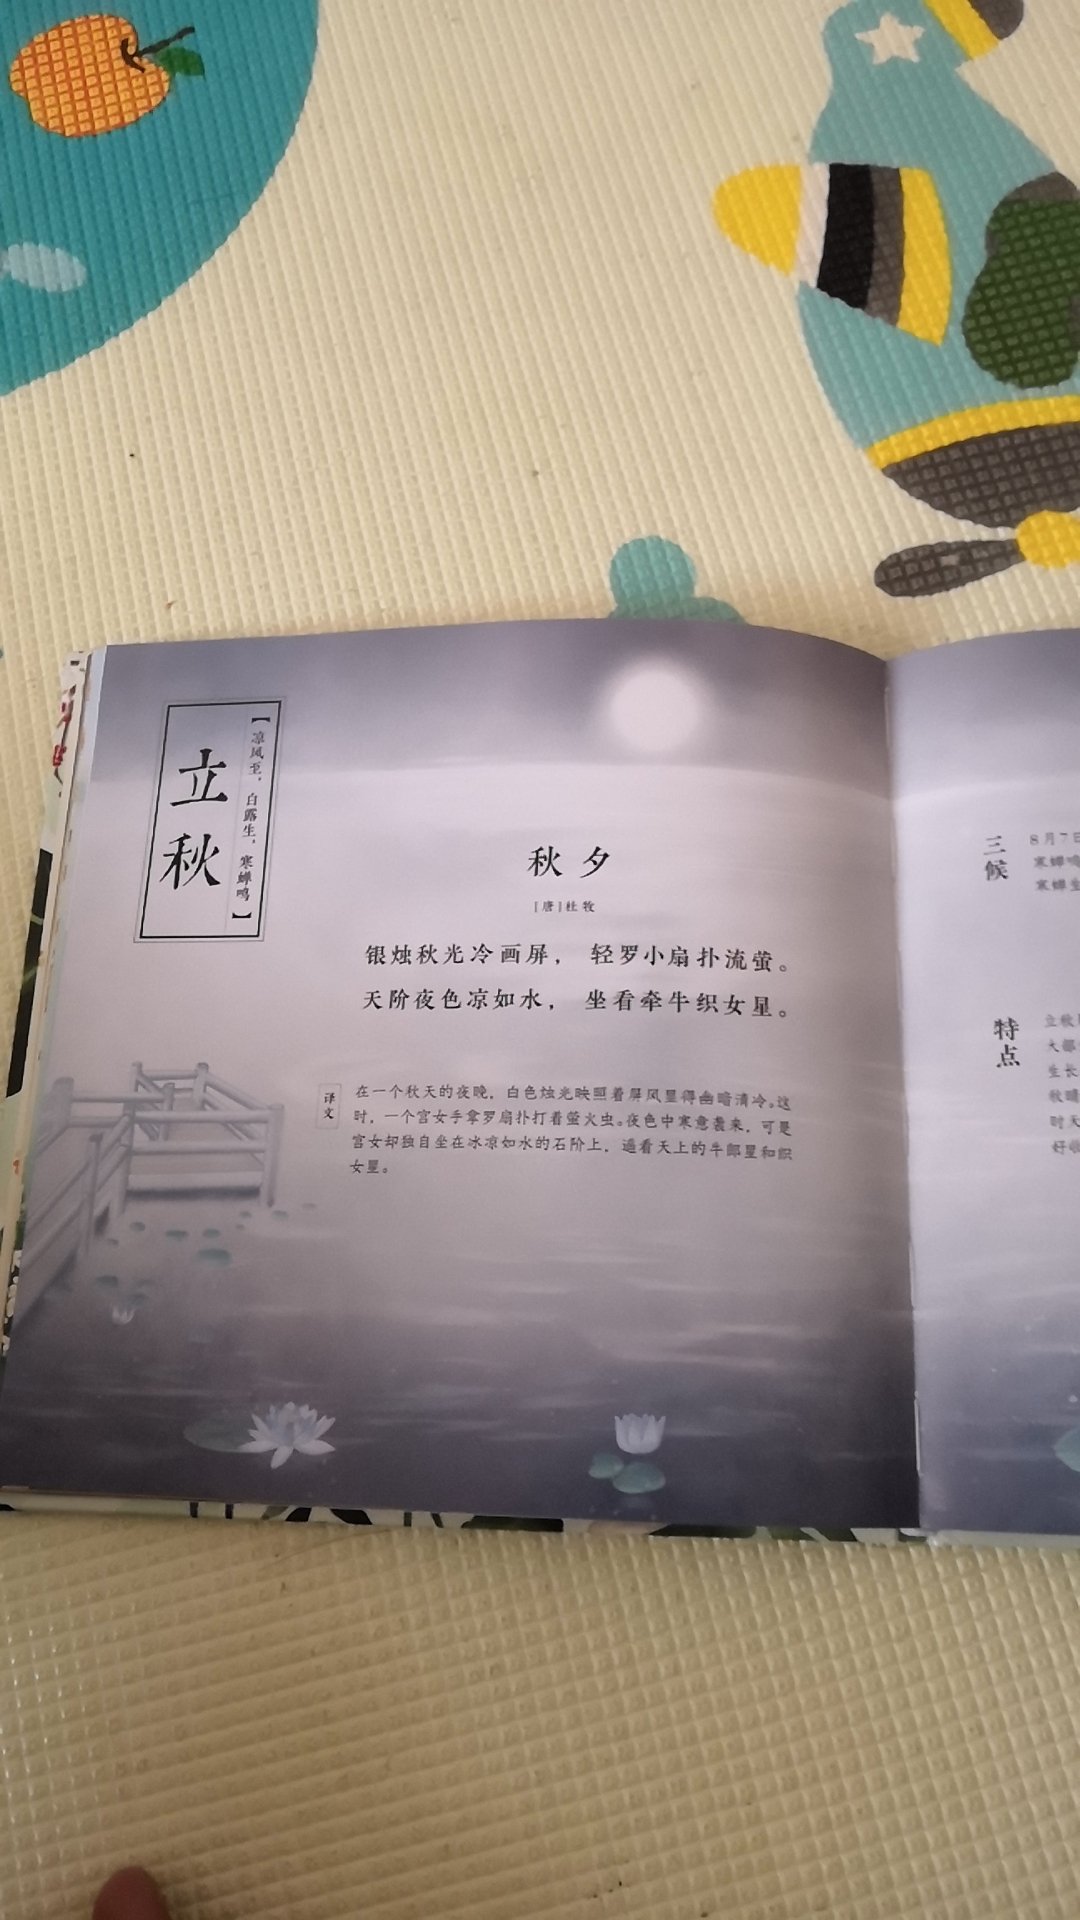 立秋
【凉风至，白露生，寒蝉鸣】
秋夕
[唐]杜牧
银烛秋光冷画屏， 轻罗小扇扑流萤。
天阶夜色凉如水， 坐看牵牛织女星。
译文
在一个秋天的夜晚，白色烛光映照着屏风显得幽暗清冷。这
时，一个宫女手拿罗扇扑打着萤火虫。夜色中寒意袭来，可是
宫女却独自坐在冰凉如水的石阶上，遥看天上的牛郎星和织
女星。
三候
8月7日
寒蝉鸣
寒蝉生
特点
立秋
大部
生长
秋晴
时天
好收